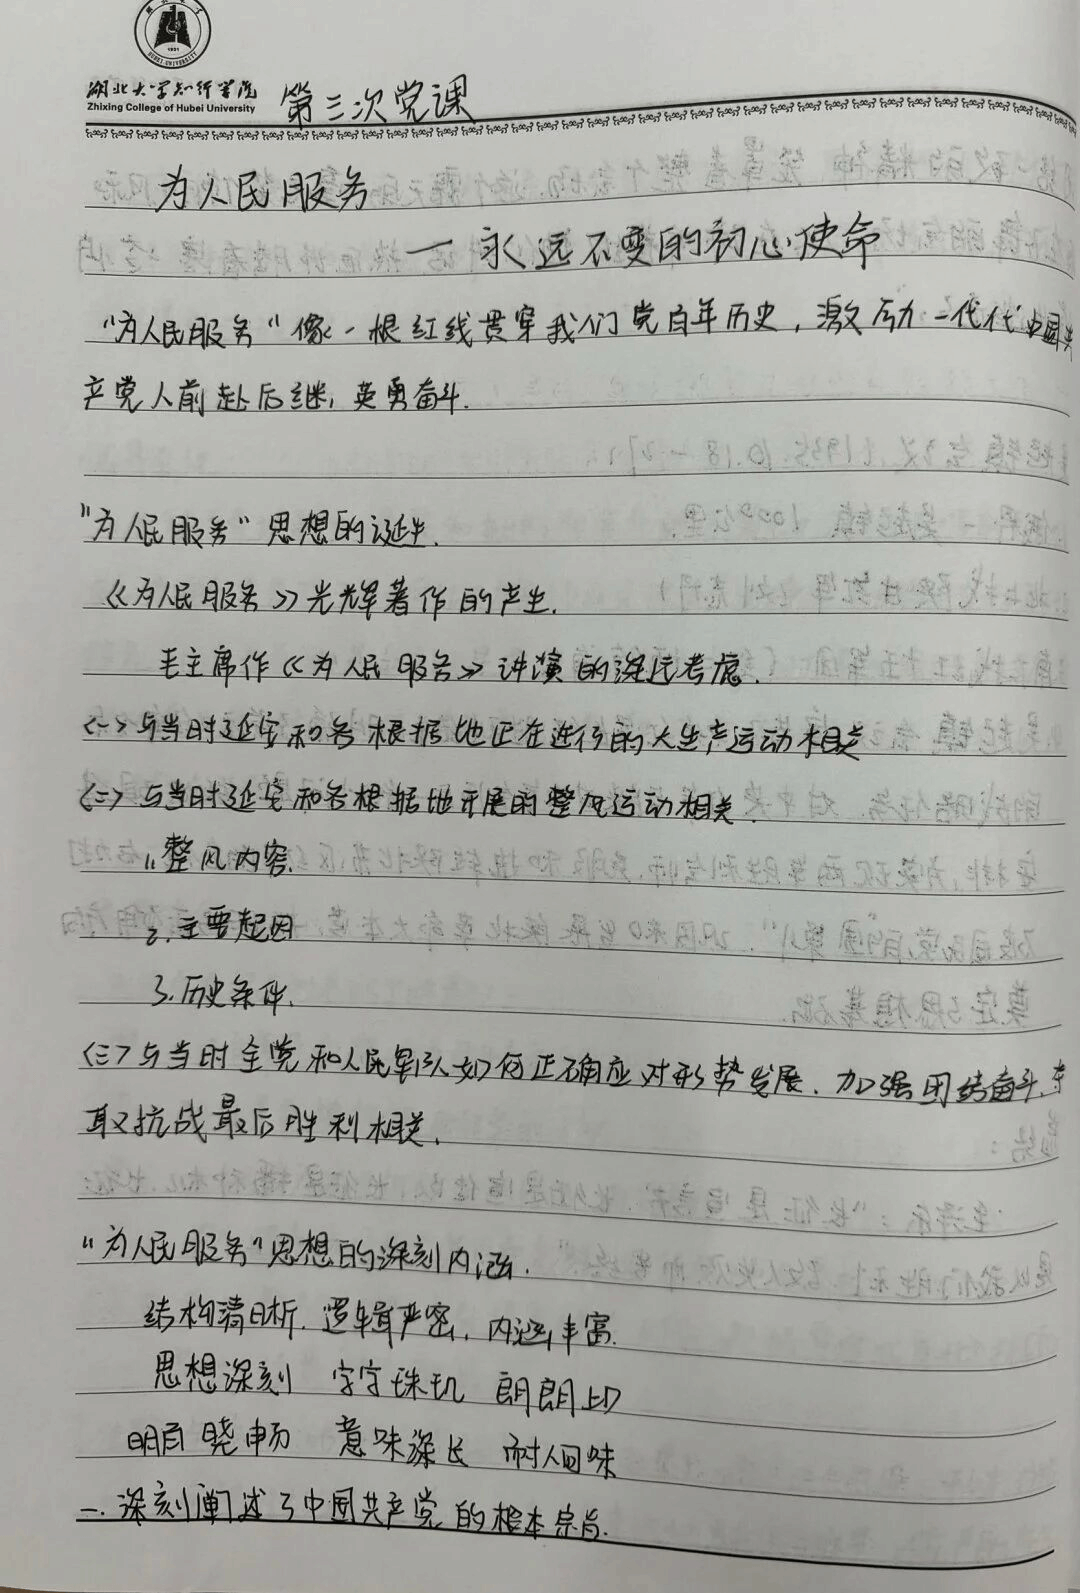 湖北大学
1931
HUBEI UNIVERSITY
湖北大学知行学院
Zhixing College of Hubei University
第三次党课
为人民服务
—永远不变的初心使命
"为人民服务"像一根红线贯穿我们党百年历史，激励一代代中国共
产党人前赴后继，英勇奋斗.
"为人民服务"思想的诞生.
《为人民服务》光辉著作的产生.
毛主席作《为人民服务》讲演的深远考虑.
<一>与当时延安和各根据地正在进行的大生产运动相关
<二>与当时延安和各根据地开展的整风运动相关.
1.整风内容.
2.主要起因
3.历史条件.
<三>与当时全党和人民军队如何正确应对形势发展.加强团结奋斗.争
取抗战最后胜利相关.
"为人民服务"思想的深刻内涵.
结构清晰.逻辑严密.内涵丰富.
思想深刻 字字珠玑 朗朗上口
明白晓畅 意味深长 耐人回味
一.深刻阐述了中国共产党的根本宗旨.